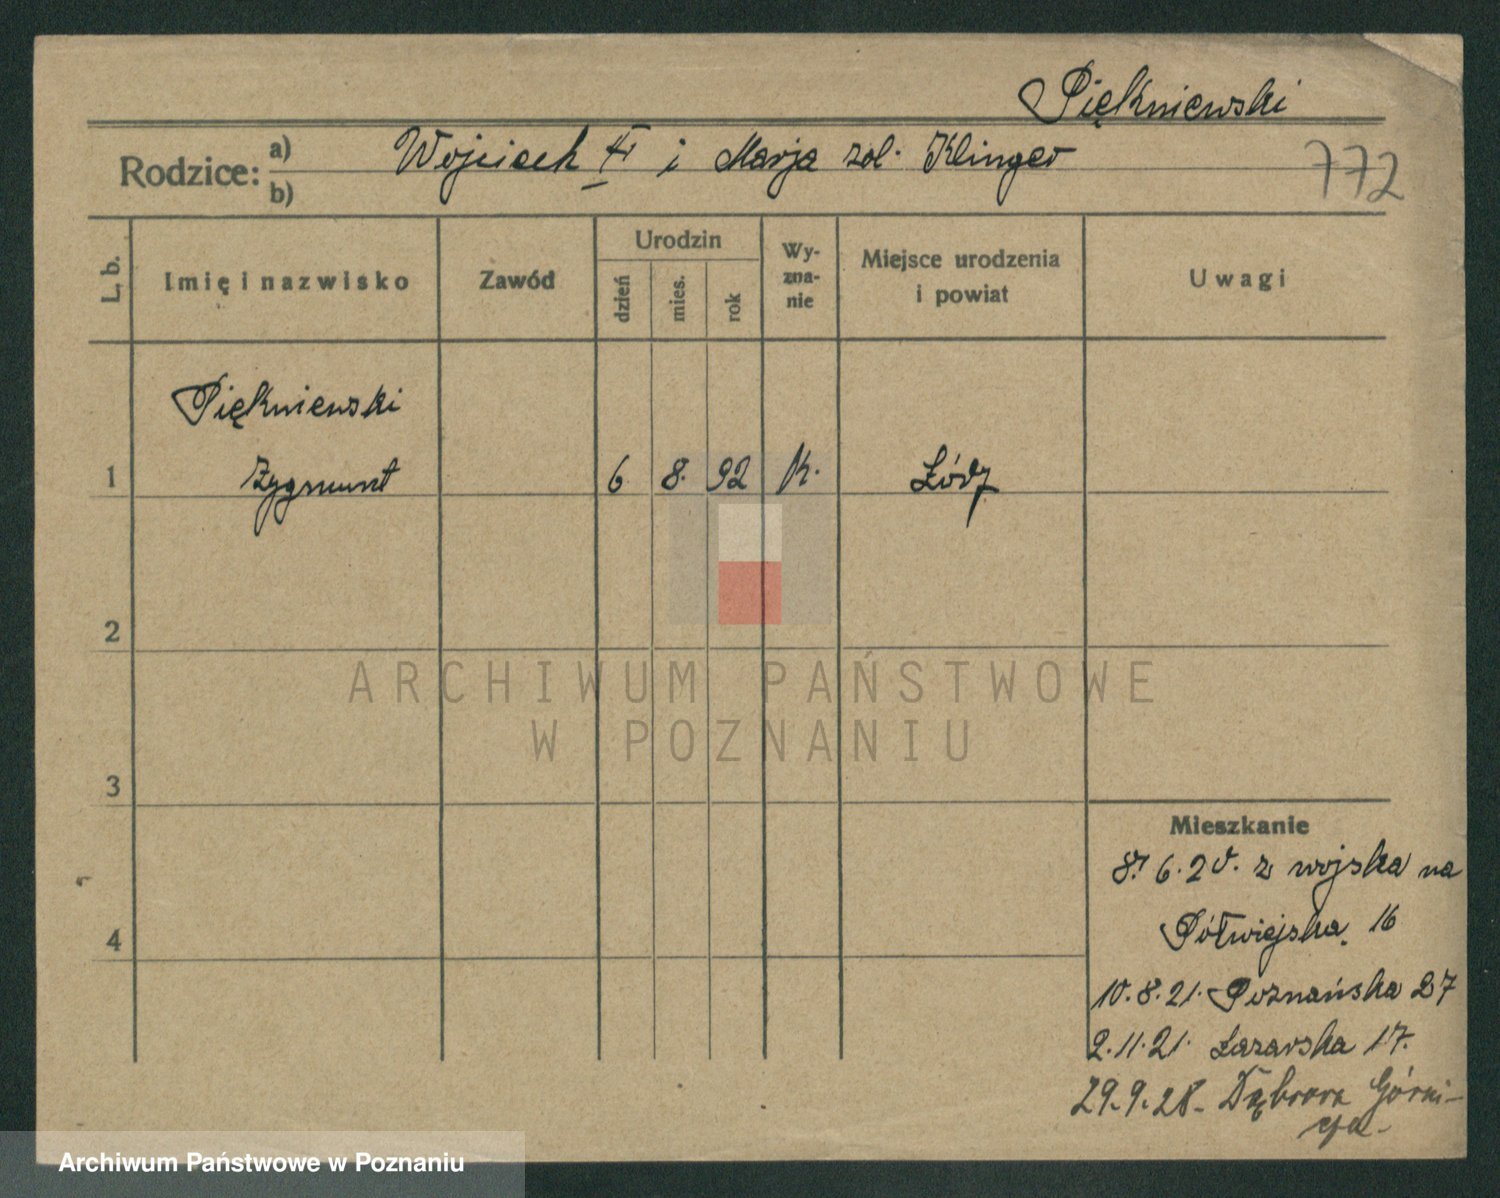 Piękniewski
Rodzice: a) b) Wojciech i Marja Klinger
772
L. b.
Imię i nazwisko
Zawód
Urodzin
dzień
mies.
rok
Wy-
zna-
nie
Miejsce urodzenia
i powiat
Uwagi
Piękniewski
1 Zygmunt 6 8. 92 k. Łódź
2
ARCHIWUM PAŃSTWOWE
W POZNANIU
3
4
Mieszkanie
8. 6. 20. z wojska na
Półwiejska 16
10. 8. 21. Poznańska 27
2. 11. 21. Łazarska 17.
29. 9. 28. Dąbrowa Górni-
cza
Archiwum Państwowe w Poznaniu